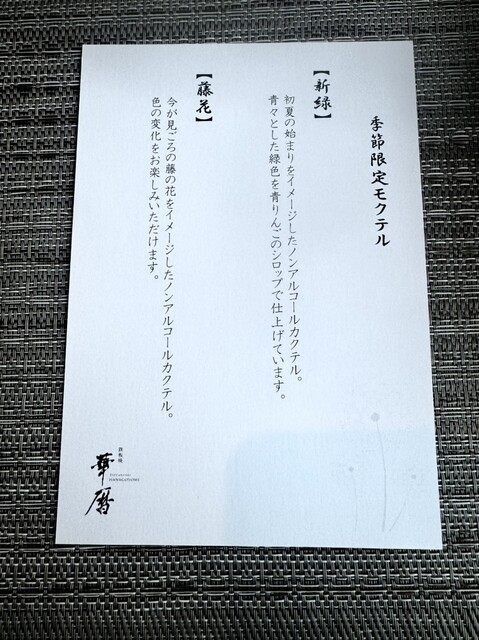 季節限定モクテル
【新緑】
初夏の始まりをイメージしたノンアルコールカクテル。
青々とした緑色を青りんごのシロップで仕上げています。
【藤花】
今が見ごろの藤の花をイメージしたノンアルコールカクテル。
色の変化をお楽しみいただけます。
鉄板焼
華暦